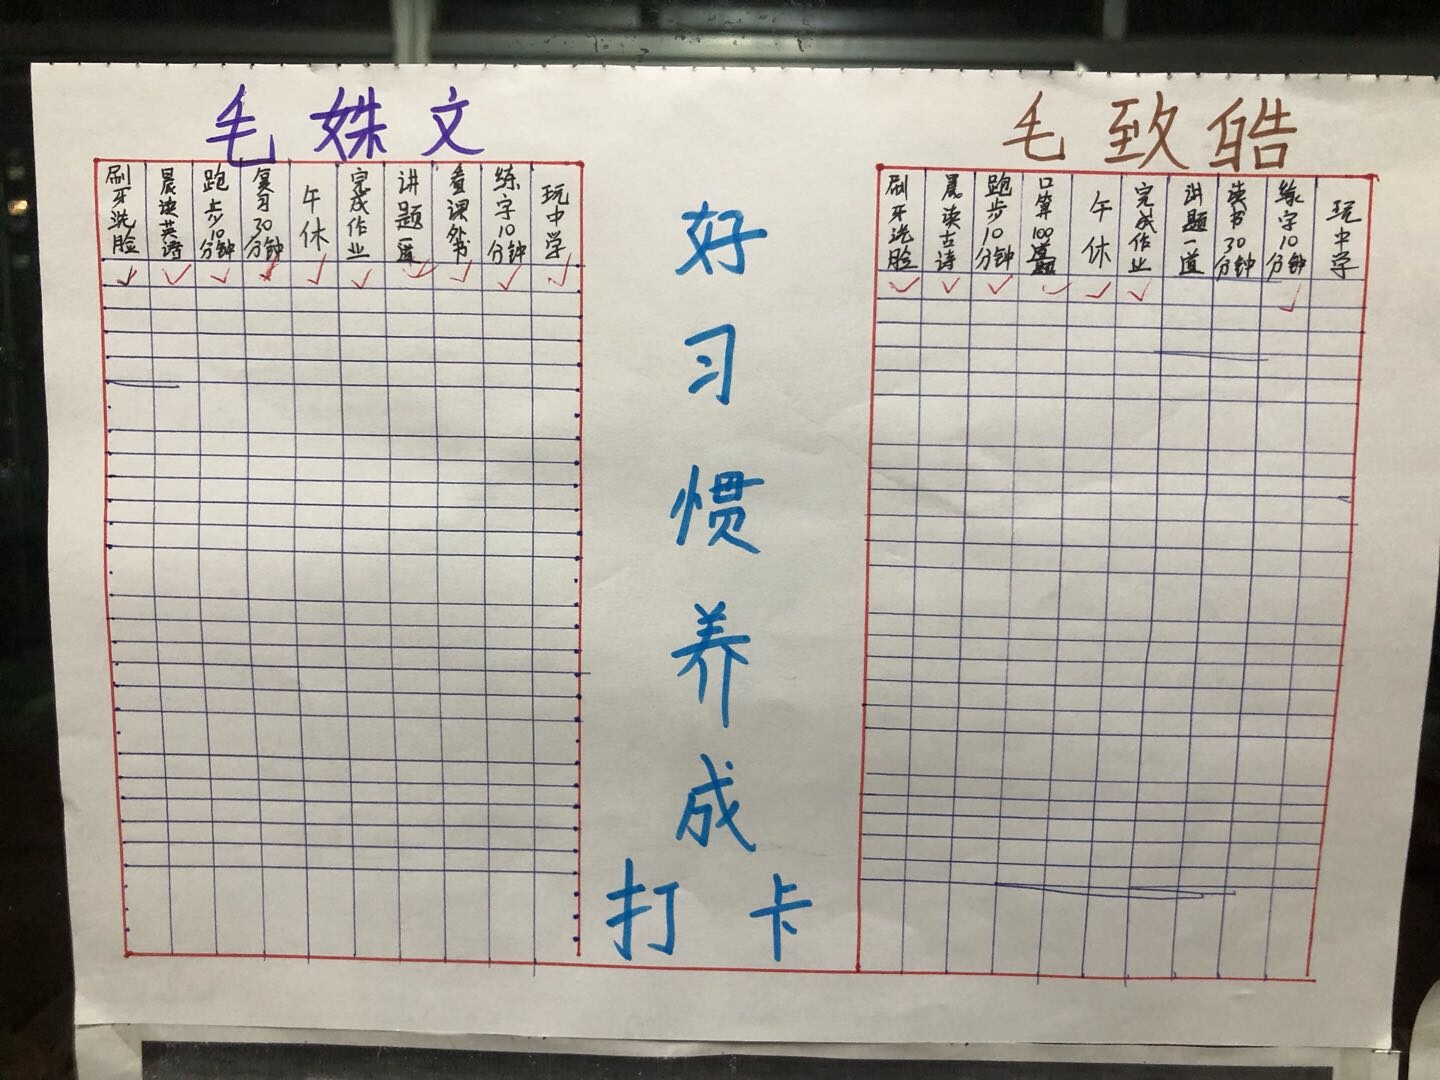 毛姝文
毛致皓
刷牙洗脸
晨读英语
跑步10分钟
复习30分钟
午休
完成作业
讲题一道
看课外书
练字10分钟
玩中学
好习惯养成
打卡
刷牙洗脸
晨读古诗
跑步10分钟
口算100道题
午休
完成作业
讲题一道
读书30分钟
练字10分钟
玩中学